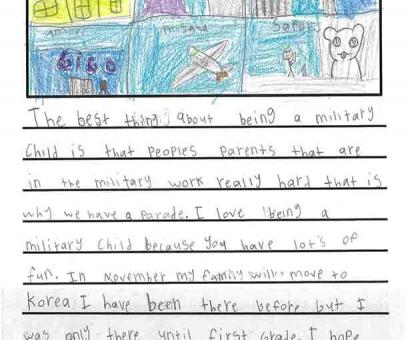 The best thing about being a military
Child is that peoples parents that are
in the military work really hard that is
why we have a parade. I love being a
military Child because you have lot's of
fun. In November my family will move to
Korea. I have been there before but I
was only there until first Grade. I hope